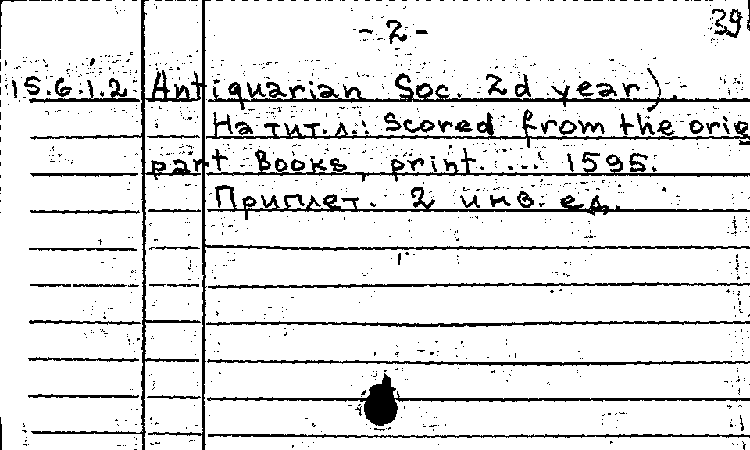 - 2 - 39
15.6.1.2 Antiquarian Soc. 2d year).
На тит.л.: Scored from the orig
part Books, print. ... 1595.
Приплет. 2 инв. ед.